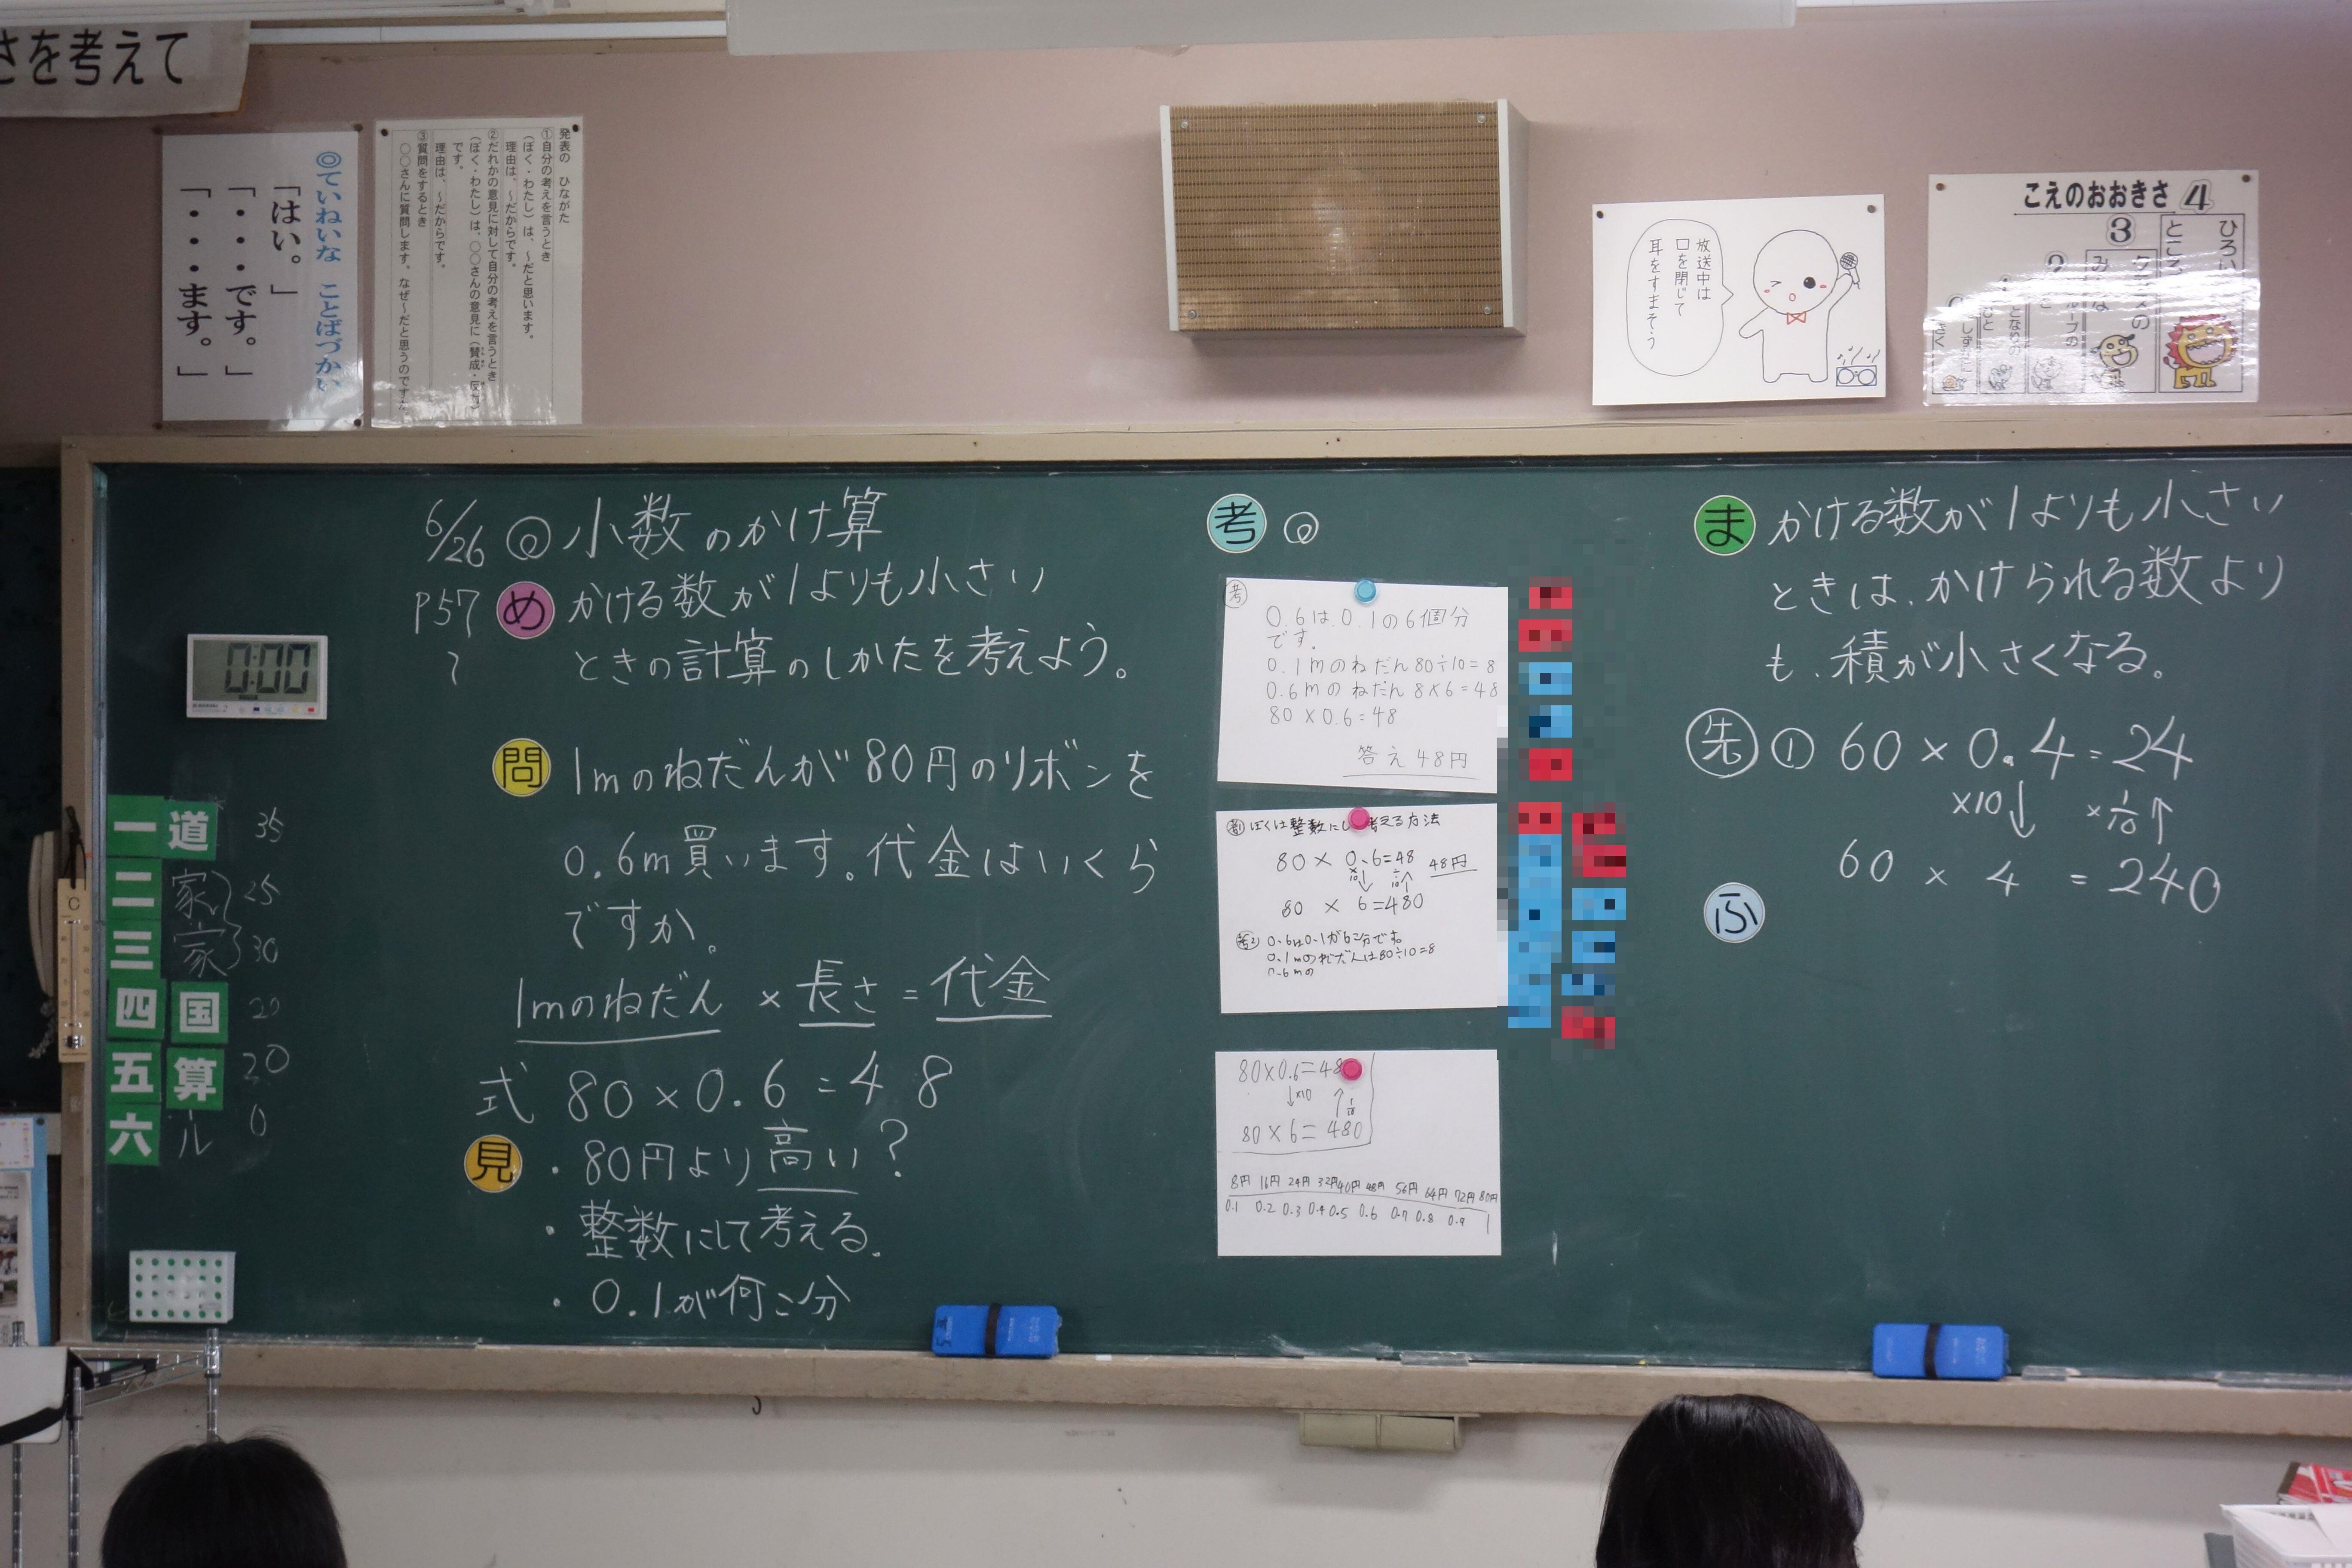 さを考えて
◎ていねいな ことばづかい
「はい。」
「・・・です。」
「・・・ます。」
発表の ひながた
①自分の考えを言うとき
(ぼく・わたし)は、~だと思います。
理由は、~だからです。
②だれかの意見に対して自分の考えを言うとき
(ぼく・わたし)は、○○さんの意見に(賛成・反対)
です。
理由は、~だからです。
③質問をするとき
○○さんに質問します。なぜ~だと思うのですか
放送中は
口を閉じて
耳をすまそう
こえのおおきさ 4
3
6/26 ◎小数のかけ算
P57
め かける数が1よりも小さい
ときの計算のしかたを考えよう。
問 1mのねだんが80円のリボンを
0.6m買います。代金はいくら
ですか。
1mのねだん × 長さ = 代金
式 80×0.6=48
見 ・80円より高い?
・整数にして考える。
・0.1が何こ分
0:00
一 道 35
二 家 25
三 家 30
四 国 20
五 算 20
六 ル 0
℃
考 ◎
考
0.6は0.1の6個分
です。
0.1mのねだん 80÷10=8
0.6mのねだん 8×6=48
80×0.6=48
答え 48円
考1 ぼくは整数にし考える方法
80 × 0.6=48 48円
×10↓ ÷10↑
80 × 6=480
考2 0.6は0.1が6こ分です。
0.1mのねだんは80÷10=8
0.6mの
80×0.6=48
↓×10 ↑1/10
80×6=480
8円 16円 24円 32円 40円 48円 56円 64円 72円 80円
0.1 0.2 0.3 0.4 0.5 0.6 0.7 0.8 0.9 1
ま かける数が1よりも小さい
ときは、かけられる数より
も、積が小さくなる。
先 ① 60×0.4=24
×10↓ ×1/10↑
60 × 4 = 240
ふ